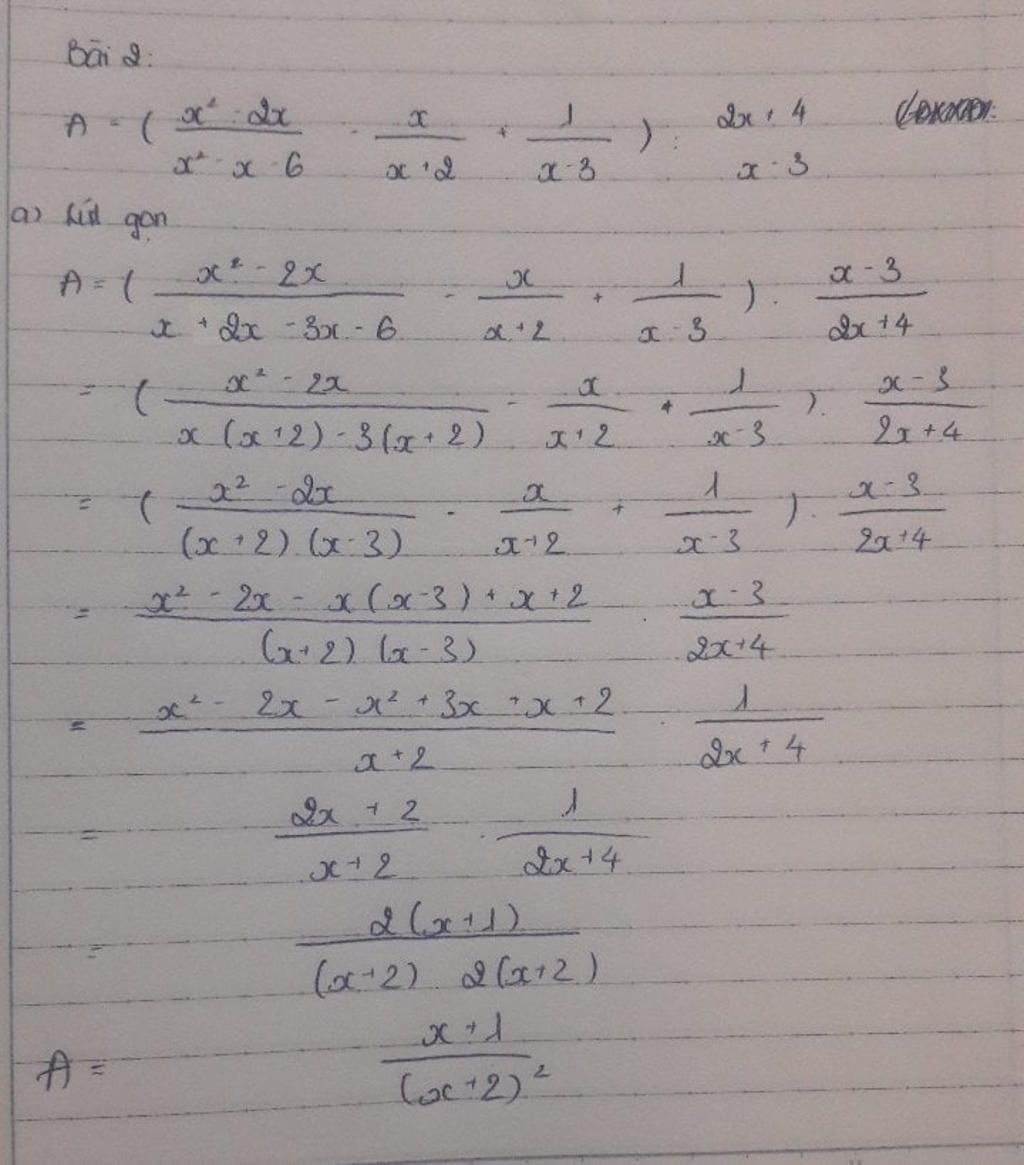 Bài 2:
A = ( x² - 2x / x² - x - 6 - x / x+2 + 1 / x-3 ) : 2x + 4 / x - 3
a) Rút gọn
A = ( x² - 2x / x + 2x - 3x - 6 - x / x+2 + 1 / x-3 ) . x - 3 / 2x+4
= ( x² - 2x / x (x+2) - 3(x+2) - x / x+2 + 1 / x-3 ) . x - 3 / 2x+4
= ( x² - 2x / (x+2) (x-3) - x / x+2 + 1 / x-3 ) . x - 3 / 2x+4
= x² - 2x - x (x-3) + x + 2 / (x+2) (x-3) . x - 3 / 2x+4
= x² - 2x - x² + 3x + x + 2 / x+2 . 1 / 2x + 4
= 2x + 2 / x+2 . 1 / 2x+4
= 2 (x+1) / (x+2) 2(x+2)
A = x + 1 / (x+2)²